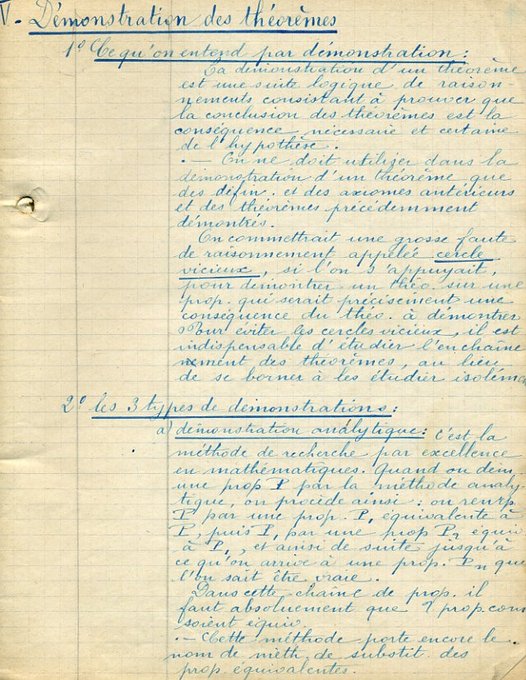 V. Démonstration des théorèmes
1° Ce qu'on entend par démonstration :
La démonstration d'un théorème
est une suite logique de raison-
nements consistant à prouver que
la conclusion des théorèmes est la
conséquence nécessaire et certaine
de l'hypothèse.
. — On ne doit utiliser dans la
démonstration d'un théorème que
des défin. et des axiomes antérieurs
et des théorèmes précédemment
démontrés.
On commettrait une grosse faute
de raisonnement appelée cercle
vicieux, si l'on s'appuyait,
pour démontrer un théo. sur une
prop. qui serait précisément une
conséquence du théo. à démontrer
Pour éviter les cercles vicieux, il est
indispensable d'étudier l'enchaîne
nement des théorèmes, au lieu
de se borner à les étudier isoléme
2° les 3 types de démonstrations :
a) démonstration analytique : C'est la
méthode de recherche par excellence
en mathématiques. Quand on dém.
une prop P par la méthode analy-
tique, on procède ainsi : on remp.
P par une prop. P₁ équivalente à
P, puis P₁ par une prop P₂ équiv
à P₁, et ainsi de suite jusqu'à
ce qu'on arrive à une prop. Pn que
l'on sait être vraie.
Dans cette chaîne de prop. il
faut absoluement que prop. con
soient équiv.
. — Cette méthode porte encore le
nom de méth. de substit. des
prop. équivalentes.